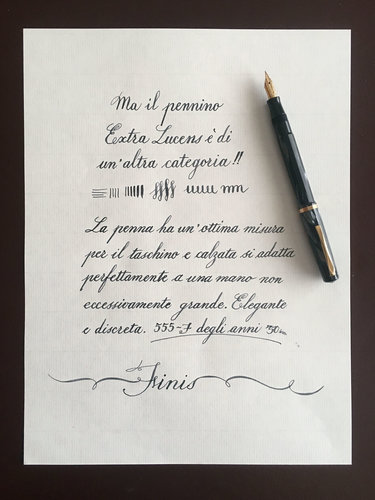 Ma il pennino
Extra Lucens è di
un'altra categoria!!
La penna ha un'ottima misura
per il taschino e calzata si adatta
perfettamente a una mano non
eccessivamente grande. Elegante
e discreta. 555-F degli anni '50
Finis